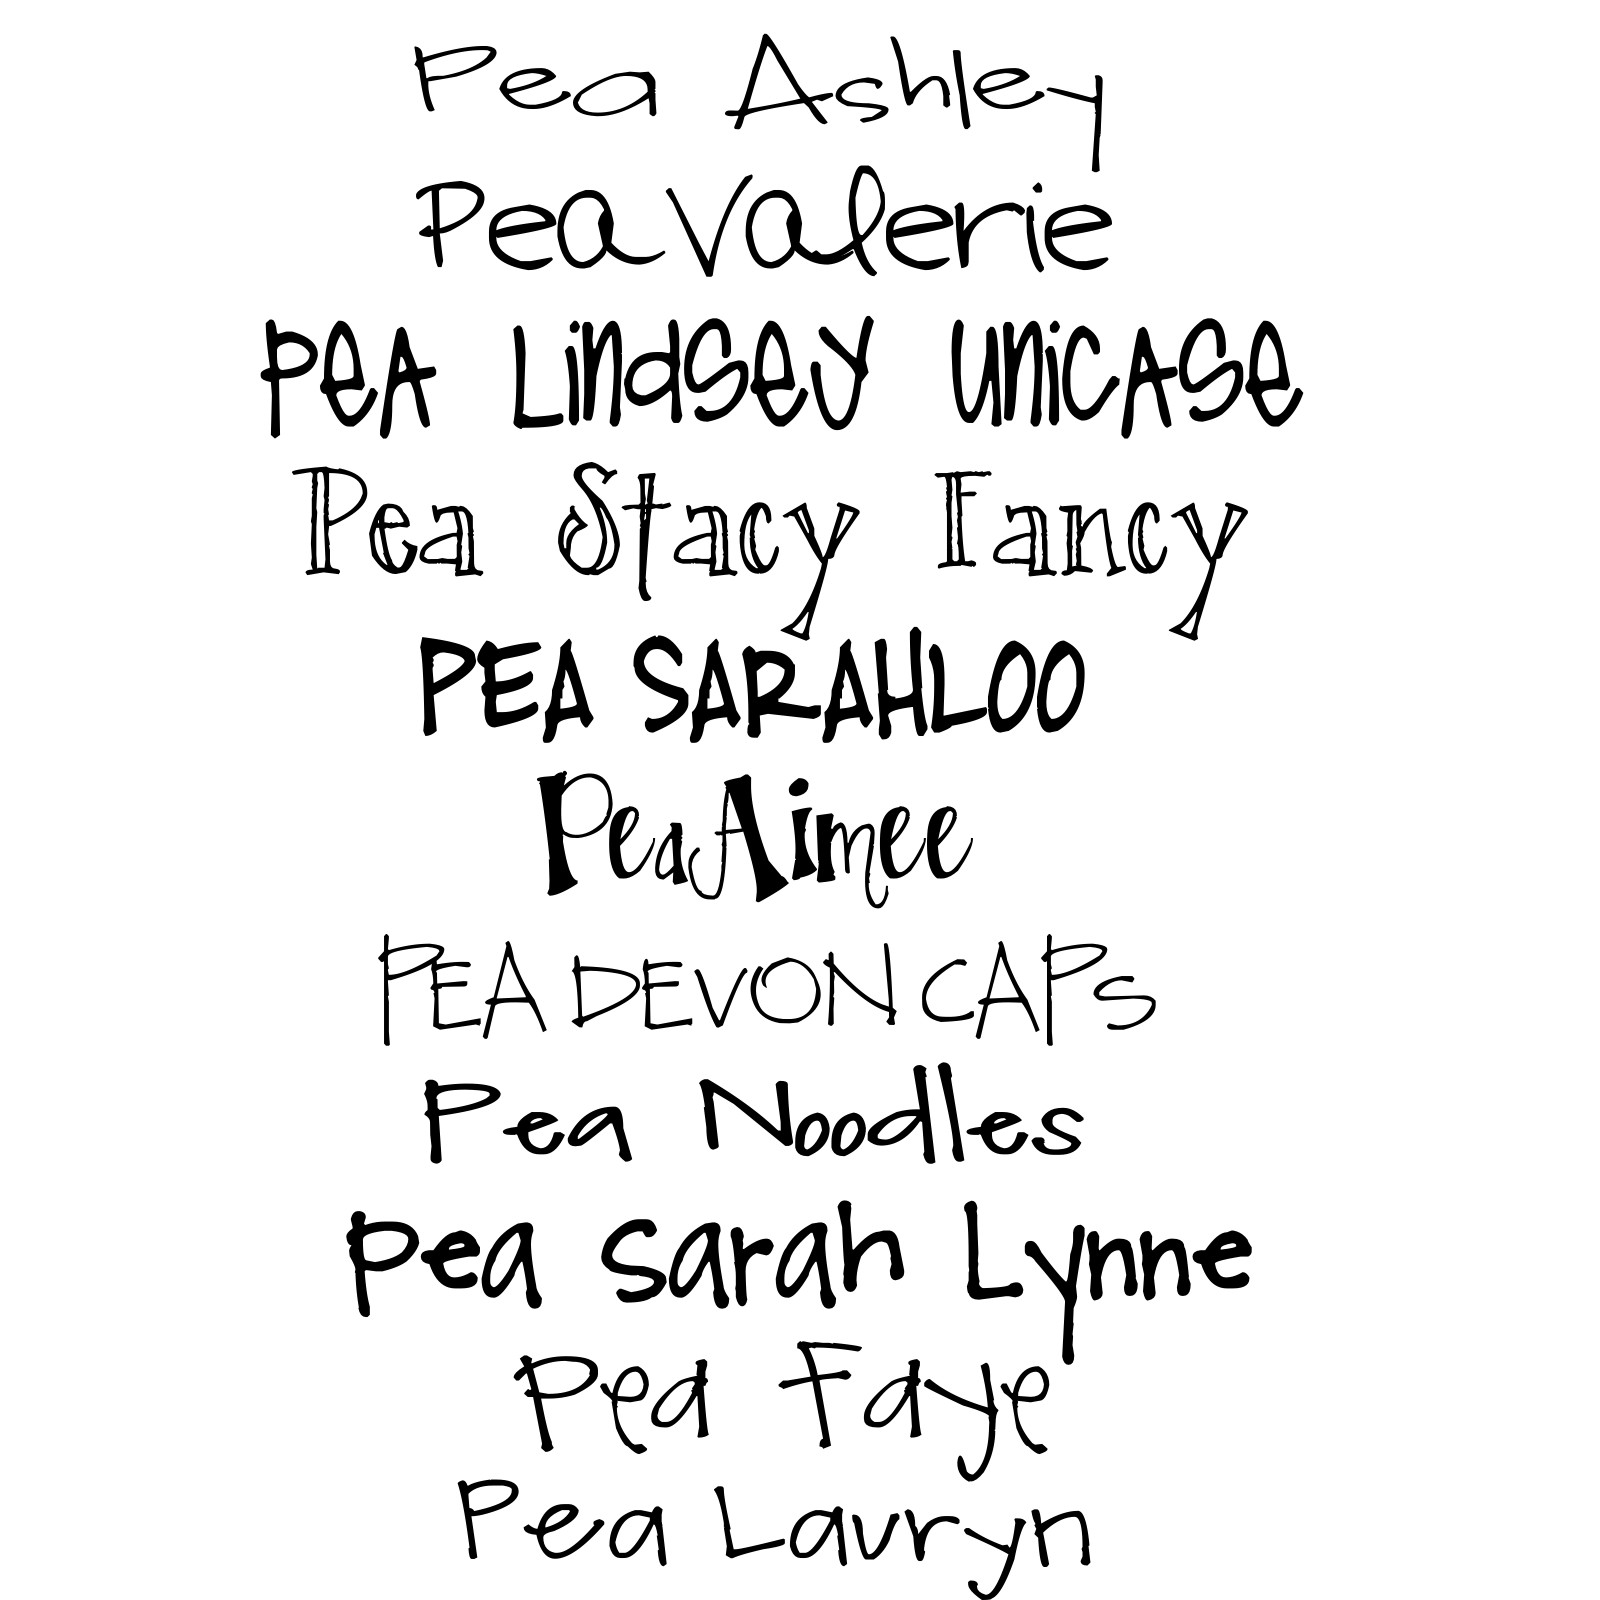 Pea Ashley
Pea Valerie
PeA Lindsey UniCASe
Pea Stacy Fancy
PEA SARAHLOO
Pea Aimee
PEA DEVON CAPS
Pea Noodles
Pea Sarah Lynne
Pea Faye
Pea Lauryn